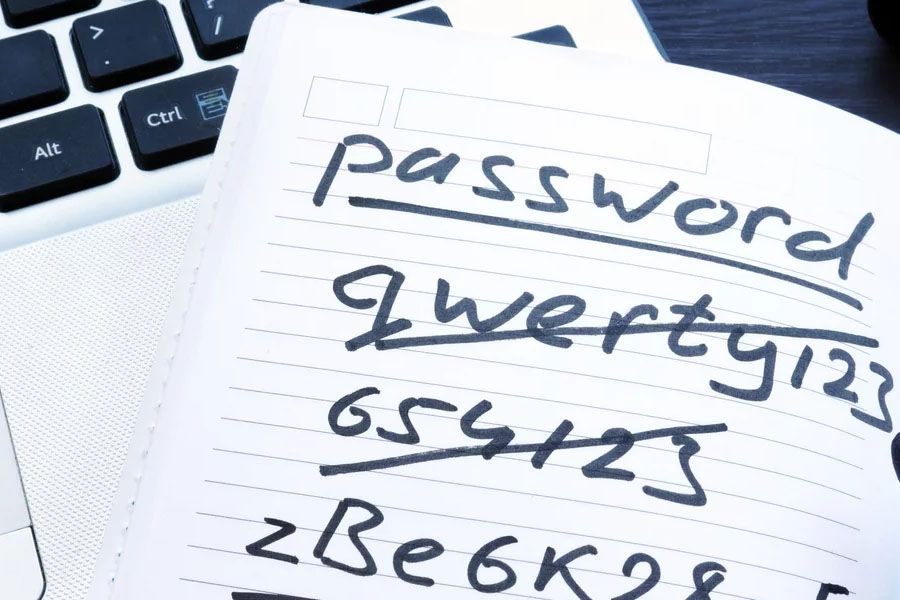 Ctrl
Alt
password
qwerty123
654123